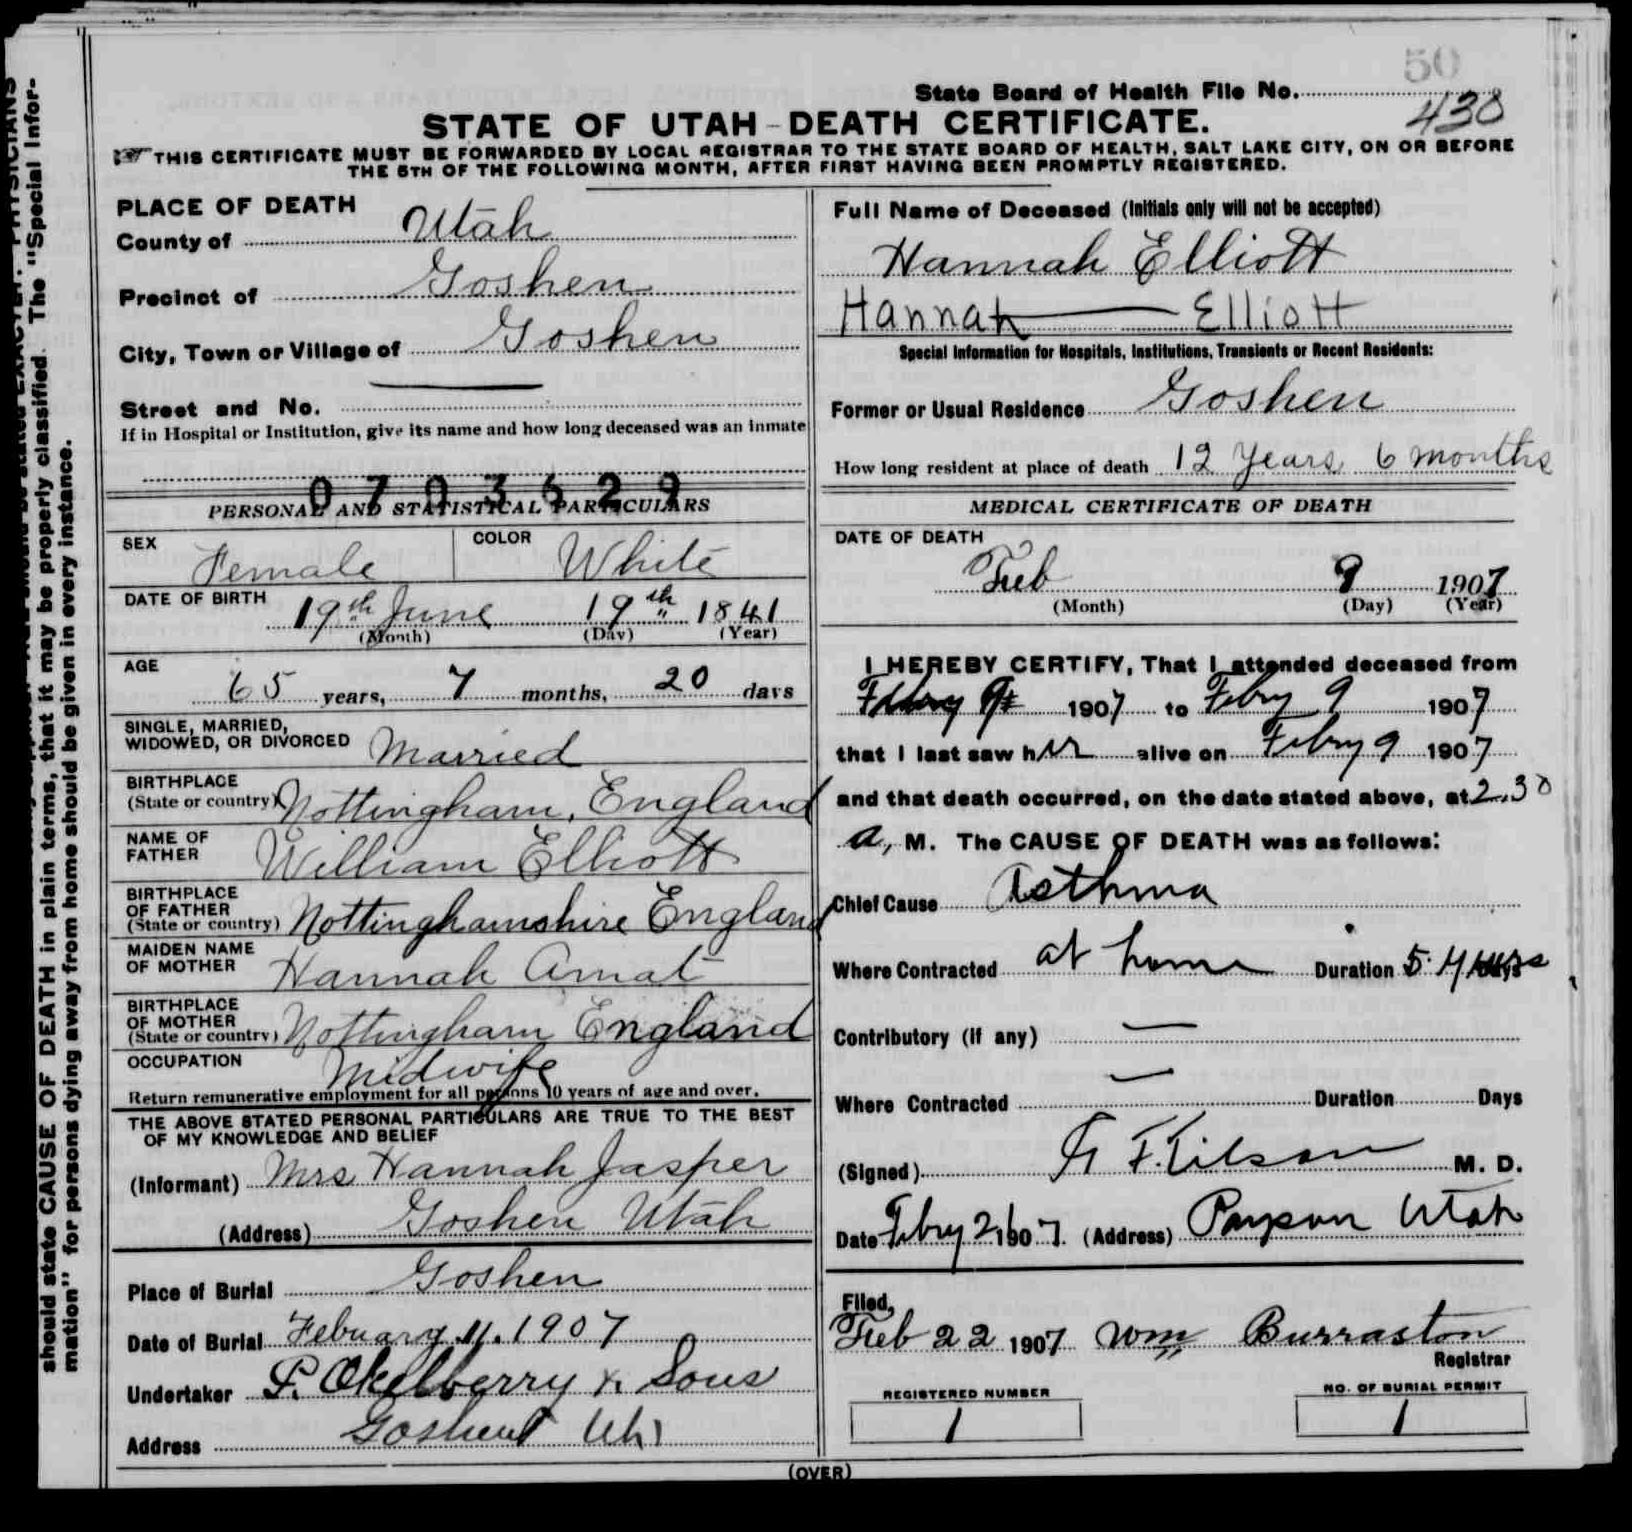 50
State Board of Health File No. 438
STATE OF UTAH - DEATH CERTIFICATE.
THIS CERTIFICATE MUST BE FORWARDED BY LOCAL REGISTRAR TO THE STATE BOARD OF HEALTH, SALT LAKE CITY, ON OR BEFORE
THE 5TH OF THE FOLLOWING MONTH, AFTER FIRST HAVING BEEN PROMPTLY REGISTERED.
PLACE OF DEATH
County of Utah
Precinct of Goshen
City, Town or Village of Goshen
Street and No.
If in Hospital or Institution, give its name and how long deceased was an inmate
0703629
PERSONAL AND STATISTICAL PARTICULARS
SEX Female COLOR White
DATE OF BIRTH 19th June 19th 1841
(Month) (Day) (Year)
AGE
65 years, 7 months, 20 days
SINGLE, MARRIED,
WIDOWED, OR DIVORCED Married
BIRTHPLACE
(State or country) Nottingham, England
NAME OF
FATHER William Elliott
BIRTHPLACE
OF FATHER
(State or country) Nottinghamshire England
MAIDEN NAME
OF MOTHER Hannah Amat
BIRTHPLACE
OF MOTHER
(State or country) Nottingham England
OCCUPATION Midwife
Return remunerative employment for all persons 10 years of age and over.
THE ABOVE STATED PERSONAL PARTICULARS ARE TRUE TO THE BEST
OF MY KNOWLEDGE AND BELIEF
(Informant) Mrs Hannah Jasper
(Address) Goshen Utah
Place of Burial Goshen
Date of Burial Febuary 11. 1907
Undertaker P. Okelberry & Sons
Address Goshen
Full Name of Deceased (Initials only will not be accepted)
Hannah Elliott
Hannah Elliott
Special Information for Hospitals, Institutions, Transients or Recent Residents:
Former or Usual Residence Goshen
How long resident at place of death 12 Years 6 months
MEDICAL CERTIFICATE OF DEATH
DATE OF DEATH
Feb 9 1907
(Month) (Day) (Year)
I HEREBY CERTIFY, That I attended deceased from
1907 to Febry 9 1907
that I last saw her alive on Febry 9 1907
and that death occurred, on the date stated above, at 2.30
a, M. The CAUSE OF DEATH was as follows:
Chief Cause Asthma
Where Contracted at home Duration 5 years
Contributory (if any) —
Where Contracted — Duration Days
(Signed) M. D.
Date Febry 21 1907. (Address) Payson Utah
Filed,
Feb 22 1907 Wm Burraston
Registrar
REGISTERED NUMBER NO. OF BURIAL PERMIT
1 1
(OVER)
should state CAUSE OF DEATH in plain terms, that it may be properly classified. The "Special Infor-
mation" for persons dying away from home should be given in every instance.